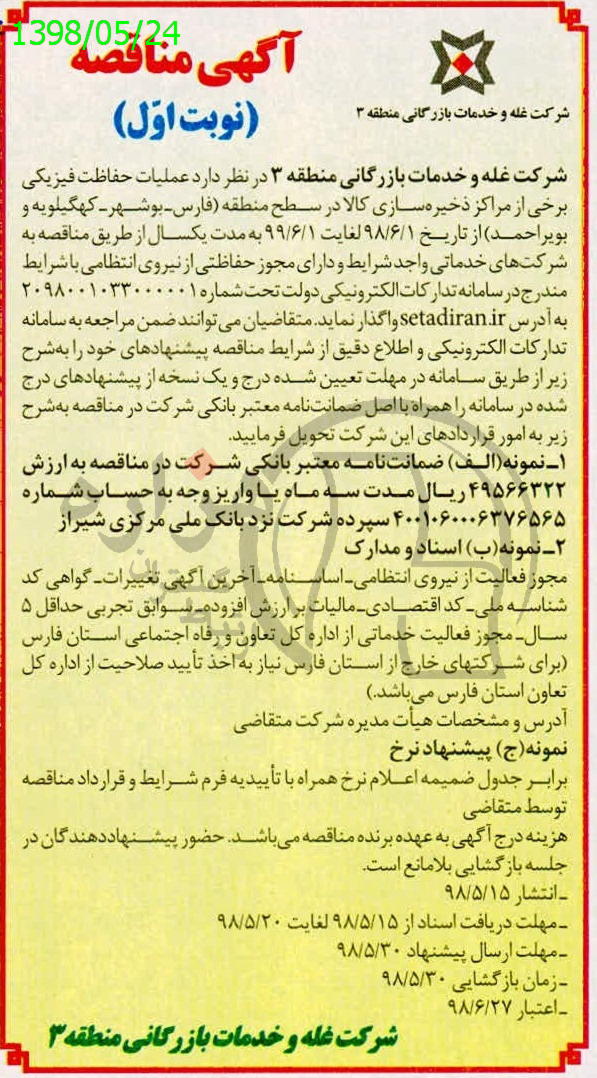 1398/05/24
شرکت غله و خدمات بازرگانی منطقه ۳
آگهی مناقصه
(نوبت اوّل)
شرکت غله و خدمات بازرگانی منطقه ۳ در نظر دارد عملیات حفاظت فیزیکی
برخی از مراکز ذخیره‌سازی کالا در سطح منطقه (فارس-بوشهر-کهگیلویه و
بویراحمد) از تاریخ ۹۸/۶/۱ لغایت ۹۹/۶/۱ به مدت یکسال از طریق مناقصه به
شرکت‌های خدماتی واجد شرایط و دارای مجوز حفاظتی از نیروی انتظامی با شرایط
مندرج در سامانه تدارکات الکترونیکی دولت تحت شماره ۲۰۹۸۰۰۱۰۳۳۰۰۰۰۰۱
به آدرس setadiran.ir واگذار نماید. متقاضیان می‌توانند ضمن مراجعه به سامانه
تدارکات الکترونیکی و اطلاع دقیق از شرایط مناقصه پیشنهادهای خود را به‌شرح
زیر از طریق سامانه در مهلت تعیین شده درج و یک نسخه از پیشنهادهای درج
شده در سامانه را همراه با اصل ضمانت‌نامه معتبر بانکی شرکت در مناقصه به‌شرح
زیر به امور قراردادهای این شرکت تحویل فرمایید.
۱-نمونه(الف) ضمانت‌نامه معتبر بانکی شرکت در مناقصه به ارزش
۴۹۵۶۶۳۲۲ ریال مدت سه ماه یا واریز وجه به حساب شماره
۴۰۰۱۰۶۰۰۰۶۳۷۶۵۶۵ سپرده شرکت نزد بانک ملی مرکزی شیراز
۲-نمونه(ب) اسناد و مدارک
مجوز فعالیت از نیروی انتظامی-اساسنامه-آخرین آگهی تغییرات-گواهی کد
شناسه ملی-کد اقتصادی-مالیات بر ارزش افزوده-سوابق تجربی حداقل ۵
سال-مجوز فعالیت خدماتی از اداره کل تعاون و رفاه اجتماعی استان فارس
(برای شرکتهای خارج از استان فارس نیاز به اخذ تأیید صلاحیت از اداره کل
تعاون استان فارس می‌باشد.)
آدرس و مشخصات هیأت مدیره شرکت متقاضی
نمونه(ج) پیشنهاد نرخ
برابر جدول ضمیمه اعلام نرخ همراه با تأییدیه فرم شرایط و قرارداد مناقصه
توسط متقاضی
هزینه درج آگهی به عهده برنده مناقصه می‌باشد. حضور پیشنهاددهندگان در
جلسه بازگشایی بلامانع است.
-انتشار ۹۸/۵/۱۵
-مهلت دریافت اسناد از ۹۸/۵/۱۵ لغایت ۹۸/۵/۲۰
-مهلت ارسال پیشنهاد ۹۸/۵/۳۰
-زمان بازگشایی ۹۸/۵/۳۰
-اعتبار ۹۸/۶/۲۷
شرکت غله و خدمات بازرگانی منطقه ۳